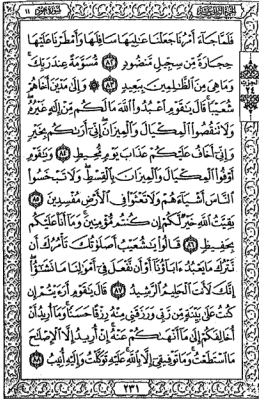 الجزء الثاني عشر سورة هود ١١
فَلَمَّا جَآءَ أَمْرُنَا جَعَلْنَا عَـٰلِيَهَا سَافِلَهَا وَأَمْطَرْنَا عَلَيْهَا
حِجَارَةً مِّن سِجِّيلٍ مَّنضُودٍ ٨٢ مُّسَوَّمَةً عِندَ رَبِّكَ
وَمَا هِيَ مِنَ ٱلظَّـٰلِمِينَ بِبَعِيدٍ ٨٣ ۞ وَإِلَىٰ مَدْيَنَ أَخَاهُمْ
شُعَيْبًا قَالَ يَـٰقَوْمِ ٱعْبُدُوا۟ ٱللَّهَ مَا لَكُم مِّنْ إِلَـٰهٍ غَيْرُهُۥ
وَلَا تَنقُصُوا۟ ٱلْمِكْيَالَ وَٱلْمِيزَانَ إِنِّىٓ أَرَىٰكُم بِخَيْرٍ
وَإِنِّىٓ أَخَافُ عَلَيْكُمْ عَذَابَ يَوْمٍ مُّحِيطٍ ٨٤ وَيَـٰقَوْمِ
أَوْفُوا۟ ٱلْمِكْيَالَ وَٱلْمِيزَانَ بِٱلْقِسْطِ وَلَا تَبْخَسُوا۟
ٱلنَّاسَ أَشْيَآءَهُمْ وَلَا تَعْثَوْا۟ فِى ٱلْأَرْضِ مُفْسِدِينَ ٨٥
بَقِيَّتُ ٱللَّهِ خَيْرٌ لَّكُمْ إِن كُنتُم مُّؤْمِنِينَ وَمَآ أَنَا۠ عَلَيْكُم
بِحَفِيظٍ ٨٦ قَالُوا۟ يَـٰشُعَيْبُ أَصَلَوٰتُكَ تَأْمُرُكَ أَن
نَّتْرُكَ مَا يَعْبُدُ ءَابَآؤُنَآ أَوْ أَن نَّفْعَلَ فِىٓ أَمْوَٰلِنَا مَا نَشَـٰٓؤُا۟
إِنَّكَ لَأَنتَ ٱلْحَلِيمُ ٱلرَّشِيدُ ٨٧ قَالَ يَـٰقَوْمِ أَرَءَيْتُمْ إِن
كُنتُ عَلَىٰ بَيِّنَةٍ مِّن رَّبِّى وَرَزَقَنِى مِنْهُ رِزْقًا حَسَنًا وَمَآ أُرِيدُ أَنْ
أُخَالِفَكُمْ إِلَىٰ مَآ أَنْهَىٰكُمْ عَنْهُ إِنْ أُرِيدُ إِلَّا ٱلْإِصْلَـٰحَ
مَا ٱسْتَطَعْتُ وَمَا تَوْفِيقِىٓ إِلَّا بِٱللَّهِ عَلَيْهِ تَوَكَّلْتُ وَإِلَيْهِ أُنِيبُ ٨٨
٢٣١